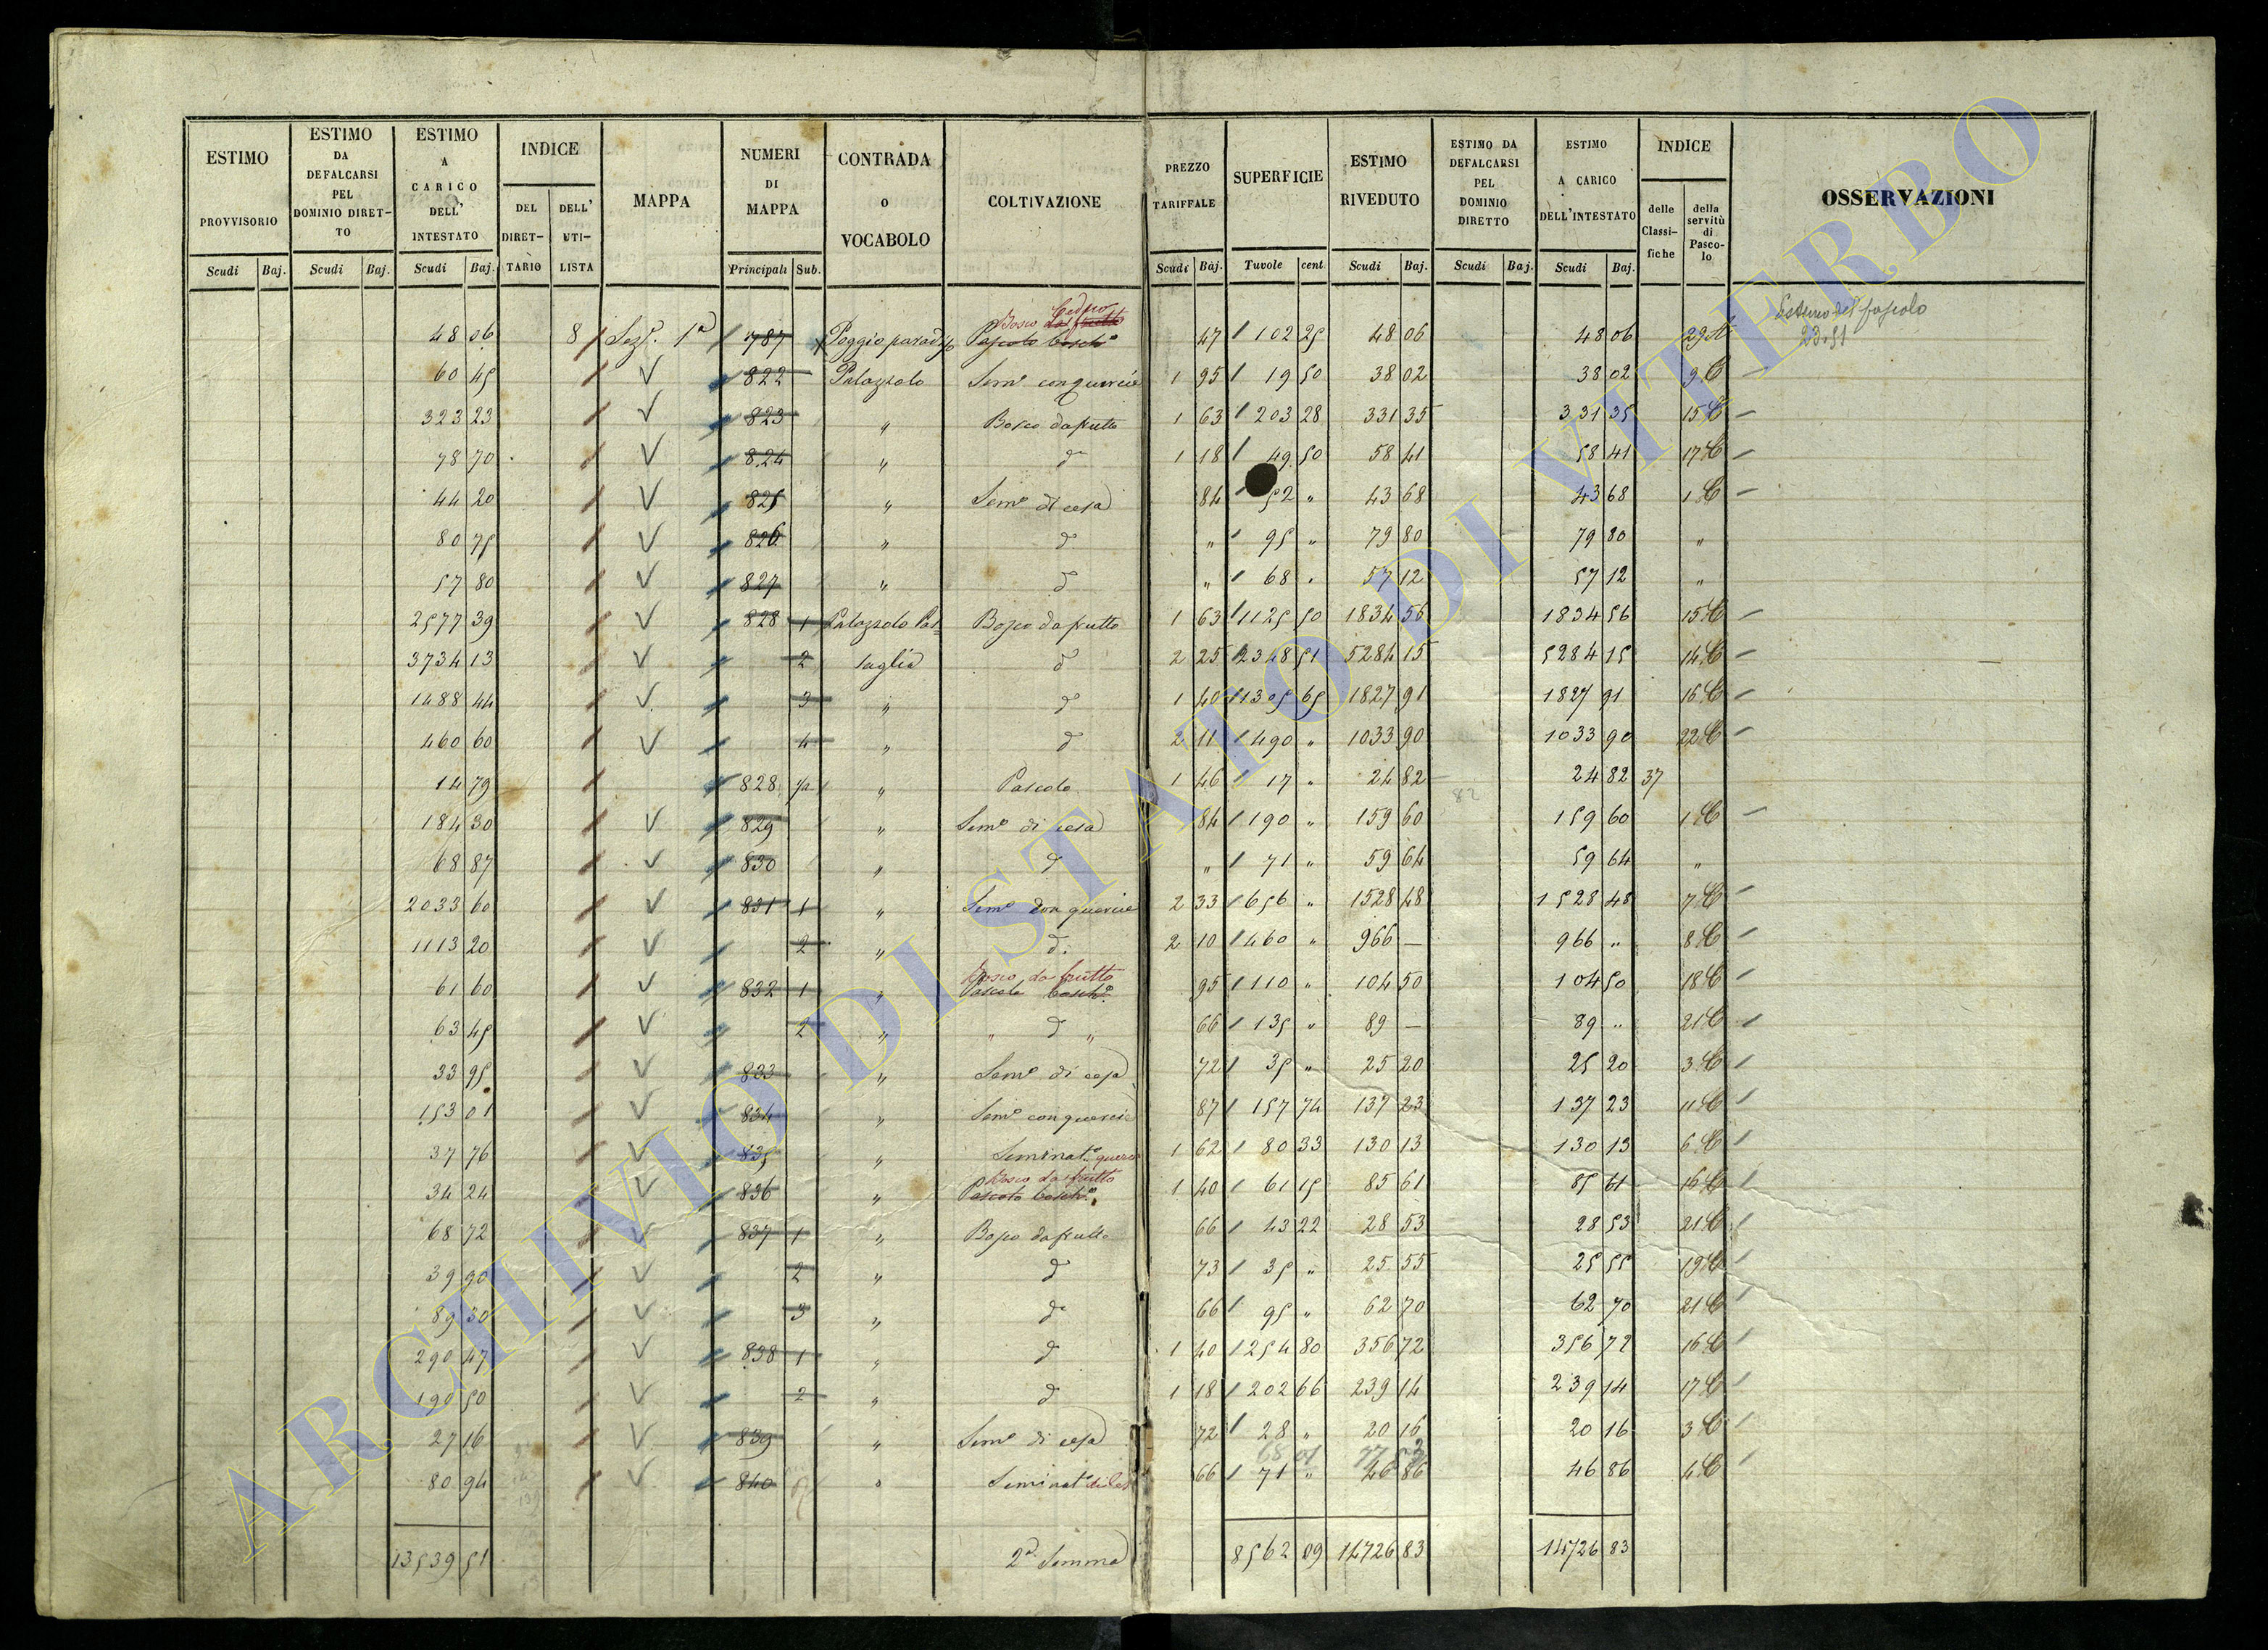 ESTIMO PROVVISORIO | ESTIMO DA DEFALCARSI PEL DOMINIO DIRET-TO | ESTIMO A CARICO DELL' INTESTATO | INDICE | MAPPA | NUMERI DI MAPPA | CONTRADA O VOCABOLO | COLTIVAZIONE | PREZZO TARIFFALE | SUPERFICIE | ESTIMO RIVEDUTO | ESTIMO DA DEFALCARSI PEL DOMINIO DIRETTO | ESTIMO A CARICO DELL'INTESTATO | INDICE | OSSERVAZIONI
DEL DIRET-TARIO | DELL' UTI-LISTA | delle Classi-fiche | della servitù di Pasco-lo
Scudi | Baj. | Scudi | Baj. | Scudi | Baj. | Principali | Sub. | Scudi | Baj. | Tuvole | cent | Scudi | Baj. | Scudi | Baj. | Scudi | Baj.
Bosco Ceduo
48 06 8 Sez.e 1a 787 Poggio paradiso Pascolo bosch.o 47 102 25 48 06 48 06 29 23.51
60 45 822 Palazzolo Sem.o con quercie 1 95 19 50 38 02 38 02 9 C
323 23 823 " Bosco da frutto 1 63 203 28 331 35 331 35 15 C
78 70 824 " d 1 18 49 50 58 41 58 41 17 C
44 20 825 " Sem.o di cesa 84 52 " 43 68 43 68 1 C
80 75 826 " d " 95 " 79 80 79 80 "
57 80 827 " d " 68 " 57 12 57 12 "
2577 39 828 1 Palazzolo Bosco da frutto 1 63 1125 50 1834 56 1834 56 15 C
3734 13 2 d 2 25 2348 51 5284 15 5284 15 14 C
1488 44 3 " d 1 40 1305 65 1827 91 1827 91 16 C
460 60 4 " d 2 11 490 " 1033 90 1033 90 22 C
14 79 828 " Pascolo 1 46 17 " 24 82 24 82 37
82
184 30 829 " Sem.o di cesa 84 190 " 159 60 159 60 1 C
68 87 830 " d " 71 " 59 64 59 64 "
2033 60 831 1 " Sem.o con quercie 2 33 656 " 1528 48 1528 48 7 C
1113 20 2 " d. 2 10 460 " 966 — 966 " 8 C
Bosco da frutto
61 60 832 1 " Pascolo bosch.o 95 110 " 104 50 104 50 18 C
63 45 2 " " d " 66 135 " 89 — 89 " 21 C
33 95 833 " Sem.o di cesa 72 35 " 25 20 25 20 3 C
153 01 834 " Sem.o con quercie 87 157 74 137 23 137 23 11 C
37 76 835 " Seminat.o querc 1 62 80 33 130 13 130 13 6 C
Bosco da frutto
34 24 836 " Pascolo bosch.o 1 40 61 15 85 61 85 61 16 C
68 72 837 1 " Bosco da frutto 66 43 22 28 53 28 53 21 C
39 90 2 " d 73 35 " 25 55 25 55 19 C
89 30 3 " d 66 95 " 62 70 62 70 21 C
290 47 838 1 " d 1 40 254 80 356 72 356 72 16 C
190 50 2 " d 1 18 202 66 239 14 239 14 17 C
27 16 839 " Sem.o di cesa 72 28 " 20 16 20 16 3 C
80 94 840 " Seminat.o 66 71 " 46 86 46 86 4 C
13539 51 2.a Somma 8562 09 14726 83 14726 83
ARCHIVIO DI STATO DI VITERBO